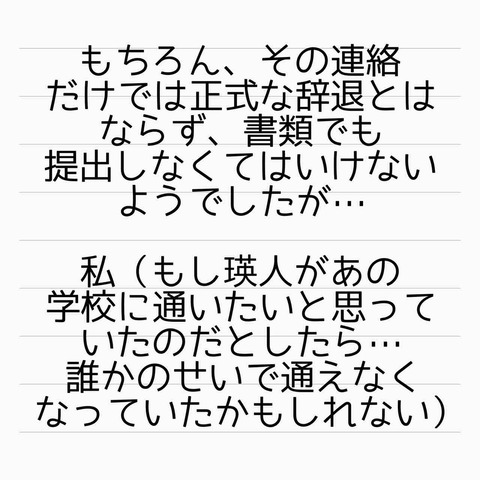 もちろん、その連絡
だけでは正式な辞退とは
ならず、書類でも
提出しなくてはいけない
ようでしたが…
私（もし瑛人があの
学校に通いたいと思って
いたのだとしたら…
誰かのせいで通えなく
なっていたかもしれない）